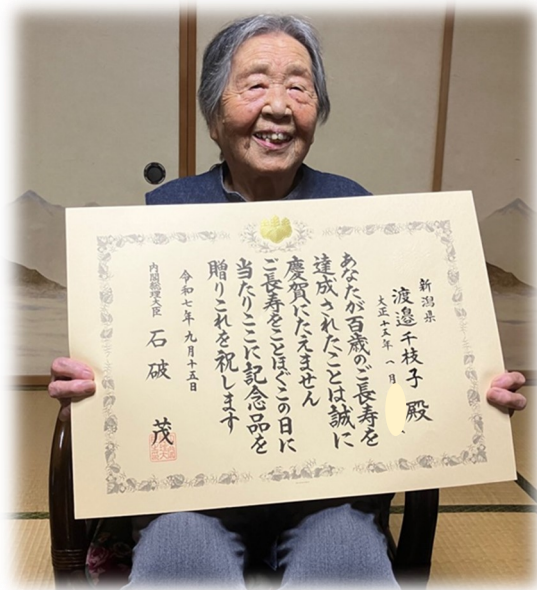 新潟県
渡邉千枝子 殿
大正十五年 一月
あなたが百歳のご長寿を
達成されたことは誠に
慶賀にたえません
ご長寿をことほぐこの日に
当たりここに記念品を
贈りこれを祝します
令和七年 九月十五日
内閣総理大臣 石破 茂